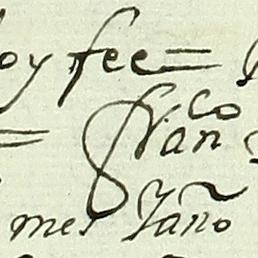 oy fee=
= fran^co
mes Jaño